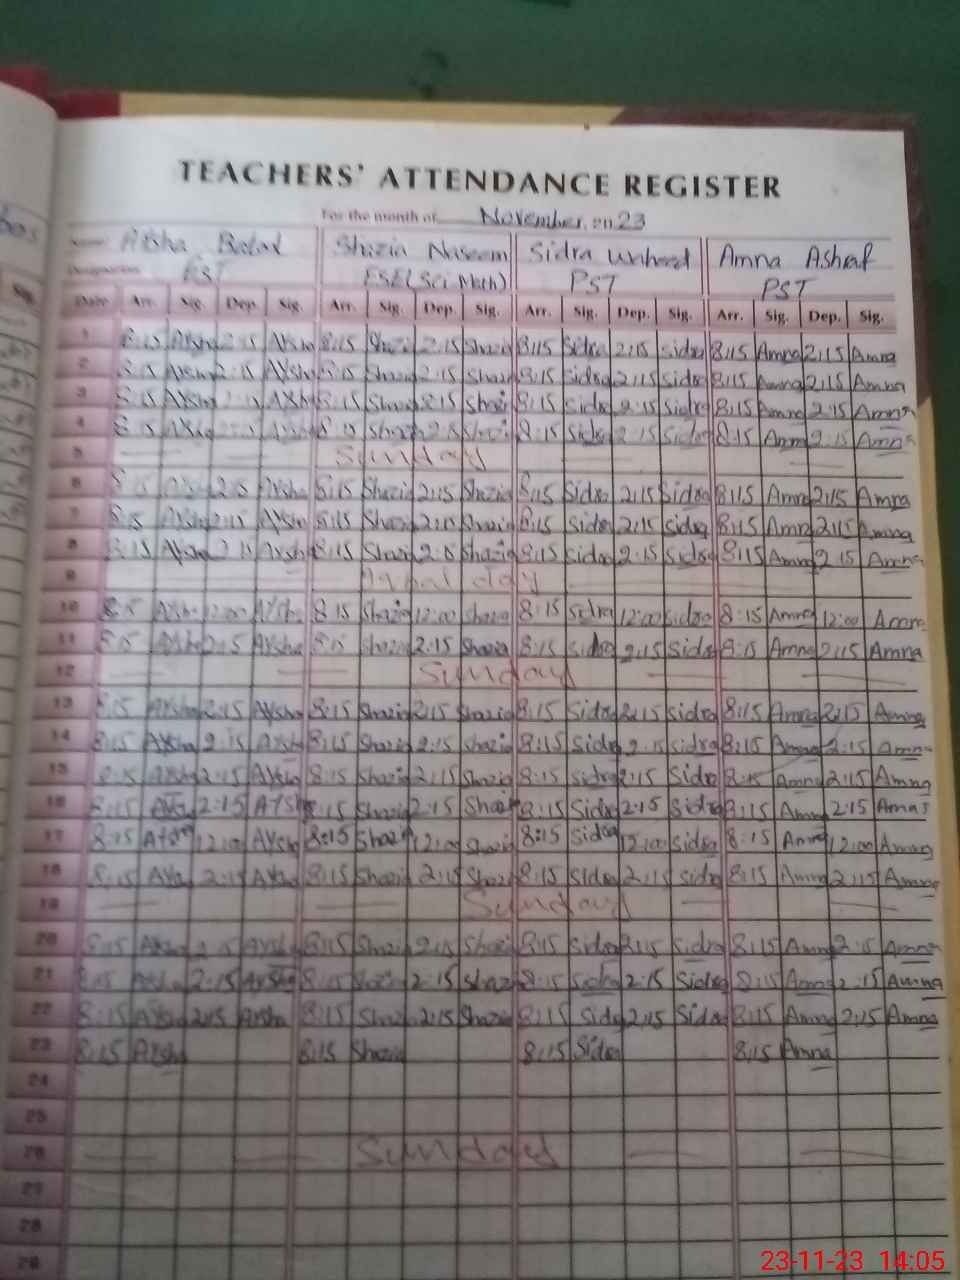 TEACHERS' ATTENDANCE REGISTER
For the month of November, 2023
Name Aysha Shazia Naseem Sidra Waheed Amna Ashraf
Designation PST PST
Date Arr. Sig. Dep. Sig. Arr. Sig. Dep. Sig. Arr. Sig. Dep. Sig. Arr. Sig. Dep. Sig.
1 8:15 Aysha 2:15 Aysha 8:15 Shazia 2:15 Shazia 8:15 Sidra 2:15 Sidra 8:15 Amna 2:15 Amna
2 8:15 Aysha 2:15 Aysha 8:15 Shazia 2:15 Shazia 8:15 Sidra 2:15 Sidra 8:15 Amna 2:15 Amna
3 8:15 Aysha Aysha 8:15 Shazia 2:15 Shazia 8:15 Sidra 2:15 Sidra 8:15 Amna 2:15 Amna
4 8:15 Aysha Aysha 8:15 Shazia 2:15 Shazia 8:15 Sidra 2:15 Sidra 8:15 Amna 2:15 Amna
5 Sunday
6 8:15 Aysha 2:15 Aysha 8:15 Shazia 2:15 Shazia 8:15 Sidra 2:15 Sidra 8:15 Amna 2:15 Amna
7 8:15 Aysha 2:15 Aysha 8:15 Shazia 2:15 Shazia 8:15 Sidra 2:15 Sidra 8:15 Amna 2:15 Amna
8 8:15 Aysha 2:15 Aysha 8:15 Shazia 2:15 Shazia 8:15 Sidra 2:15 Sidra 8:15 Amna 2:15 Amna
9 day
10 8:15 Aysha 12:00 Aysha 8:15 Shazia 12:00 Shazia 8:15 Sidra 12:00 Sidra 8:15 Amna 12:00 Amna
11 8:15 Aysha 2:15 Aysha 8:15 Shazia 2:15 Shazia 8:15 Sidra 2:15 Sidra 8:15 Amna 2:15 Amna
12 Sunday
13 8:15 Aysha 2:15 Aysha 8:15 Shazia 2:15 Shazia 8:15 Sidra 2:15 Sidra 8:15 Amna 2:15 Amna
14 8:15 Aysha 2:15 Aysha 8:15 Shazia 2:15 Shazia 8:15 Sidra 2:15 Sidra 8:15 Amna 2:15 Amna
15 8:15 Aysha 2:15 Aysha 8:15 Shazia 2:15 Shazia 8:15 Sidra 2:15 Sidra 8:15 Amna 2:15 Amna
16 8:15 Aysha 2:15 Aysha 8:15 Shazia 2:15 Shazia 8:15 Sidra 2:15 Sidra 8:15 Amna 2:15 Amna
17 8:15 Aysha 12:00 Aysha 8:15 Shazia 12:00 Shazia 8:15 Sidra 12:00 Sidra 8:15 Amna 12:00 Amna
18 8:15 Aysha 2:15 Aysha 8:15 Shazia 2:15 Shazia 8:15 Sidra 2:15 Sidra 8:15 Amna 2:15 Amna
19 Sunday
20 8:15 Aysha 2:15 Aysha 8:15 Shazia 2:15 Shazia 8:15 Sidra 2:15 Sidra 8:15 Amna 2:15 Amna
21 8:15 Aysha 2:15 Aysha 8:15 Shazia 2:15 Shazia 8:15 Sidra 2:15 Sidra 8:15 Amna 2:15 Amna
22 8:15 Aysha 2:15 Aysha 8:15 Shazia 2:15 Shazia 8:15 Sidra 2:15 Sidra 8:15 Amna 2:15 Amna
23 8:15 Aysha 8:15 Shazia 8:15 Sidra 8:15 Amna
24
25
26 Sunday
27
28
29
23-11-23 14:05